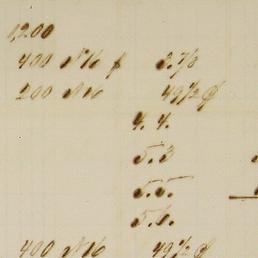 1,200
400 No 16 $ 3.70
200 No 16 49 1/2 ¢
4. 4.
5.3
5.5.
5.6.
400 No 16 49 1/2 ¢